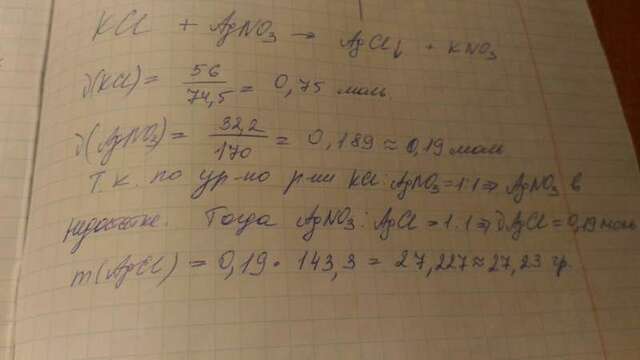 KCl + AgNO₃ → AgCl↓ + KNO₃
ν(KCl) = 56/74,5 = 0,75 моль
ν(AgNO₃) = 32,2/170 = 0,189 ≈ 0,19 моль
Т.к. по ур-ию р-ии KCl:AgNO₃=1:1 ⇒ AgNO₃ в
недостатке. Тогда AgNO₃:AgCl = 1:1 ⇒ νAgCl = 0,19 моль
m(AgCl) = 0,19 · 143,3 = 27,227 ≈ 27,23 гр.